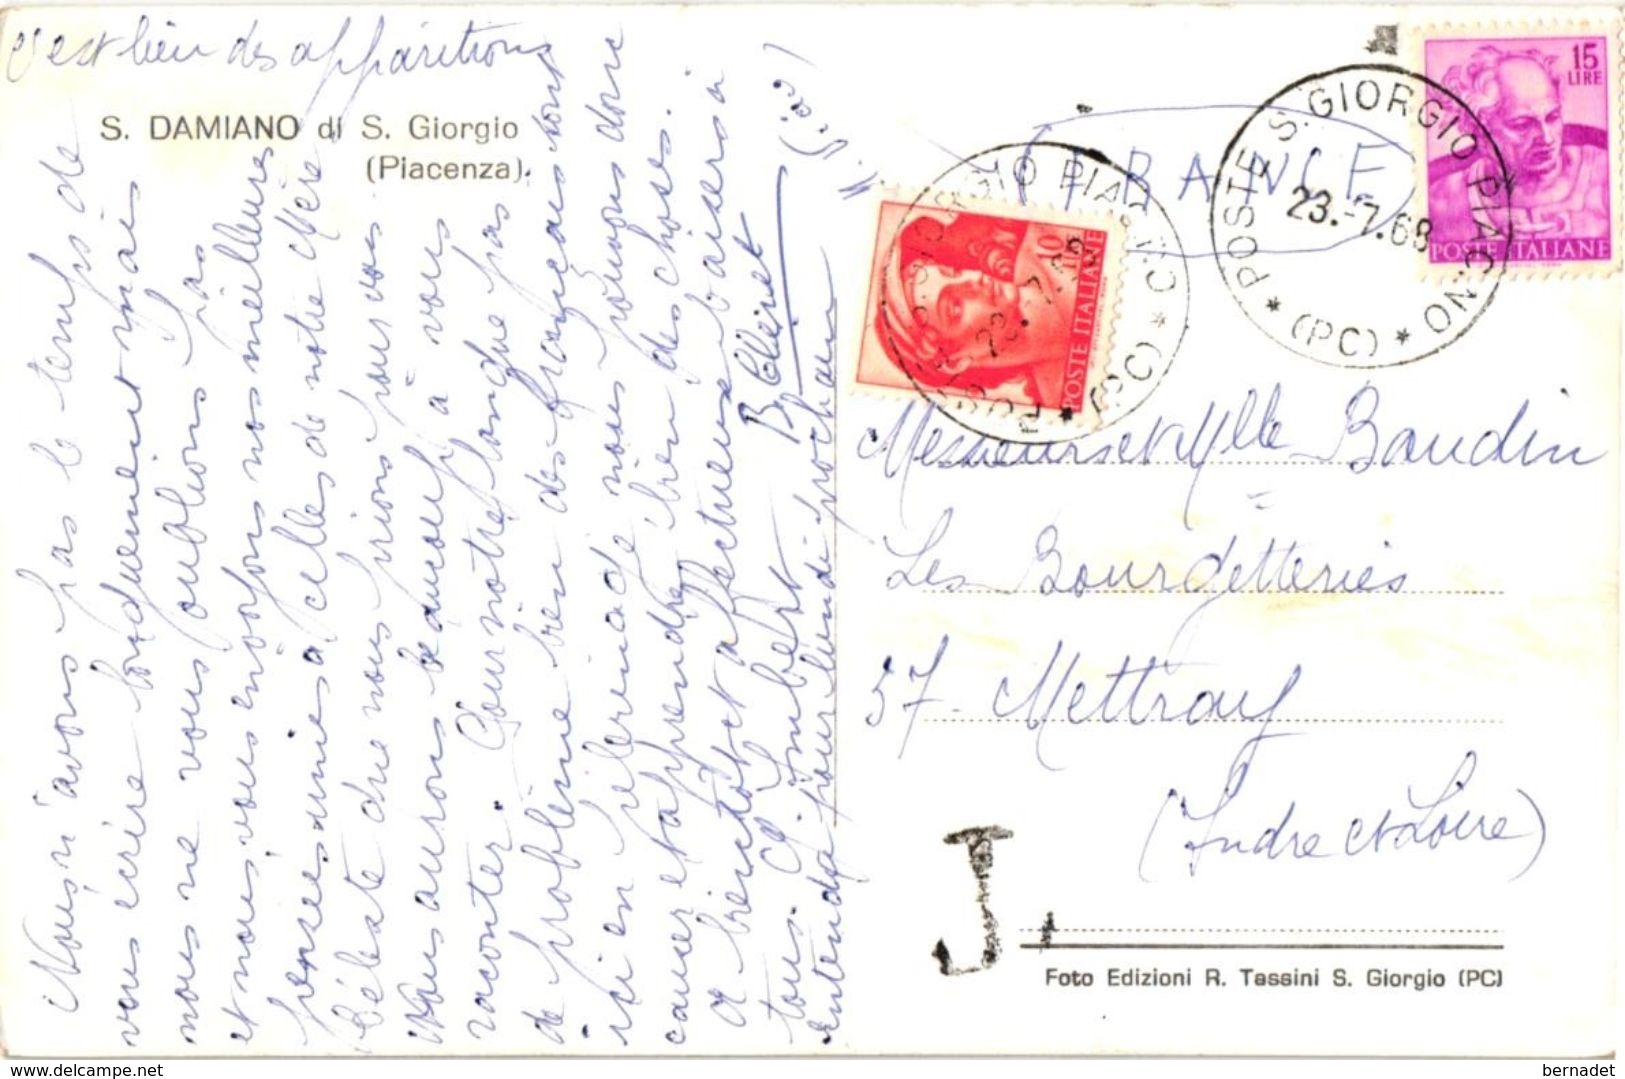 c'est lieu des apparitions
S. DAMIANO di S. Giorgio
(Piacenza).
Nous n'avons pas le temps de
vous écrire longuement mais
nous ne vous oublions pas
et nous vous envoyons nos meilleures
pensées unies à celles de notre Mère
Céleste que nous prions pour vous.
Nous aurons beaucoup à vous
raconter. Pour notre langue pas
de problème bien des français sont
ici en pélerinage nous pouvons donc
causer et apprendre bien des choses.
à bientôt et affectueux baisers à
tous. B Cléret
entendu pour lundi prochain
FRANCE
15
LIRE
POSTE ITALIANE
POSTE S. GIORGIO PIAC.NO
23.-7.68
* (PC) *
10
LIRE
POSTE ITALIANE
GIORGIO PIAC.NO
* (PC) *
Messieurs et Mlle Baudin
Les Bourgetteries
37- Mettray
(Indre et Loire)
J.
Foto Edizioni R. Tassini S. Giorgio (PC)
www.delcampe.net
bernadet